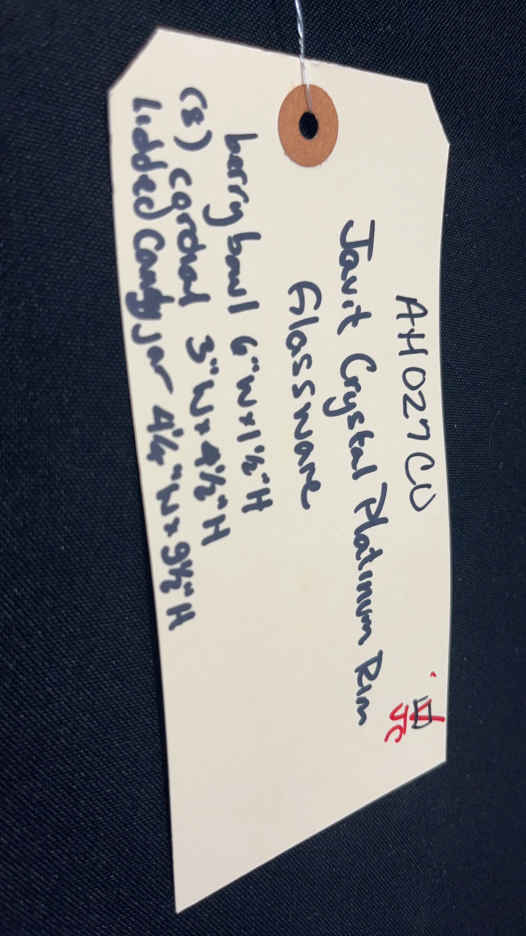 AH027CO
Javit Crystal Platinum Rim
Glassware
berry bowl 6"W x 1½"H
(8) cordial 3"W x 4½"H
Lidded Candy Jar 4¼"W x 9½"H
JC